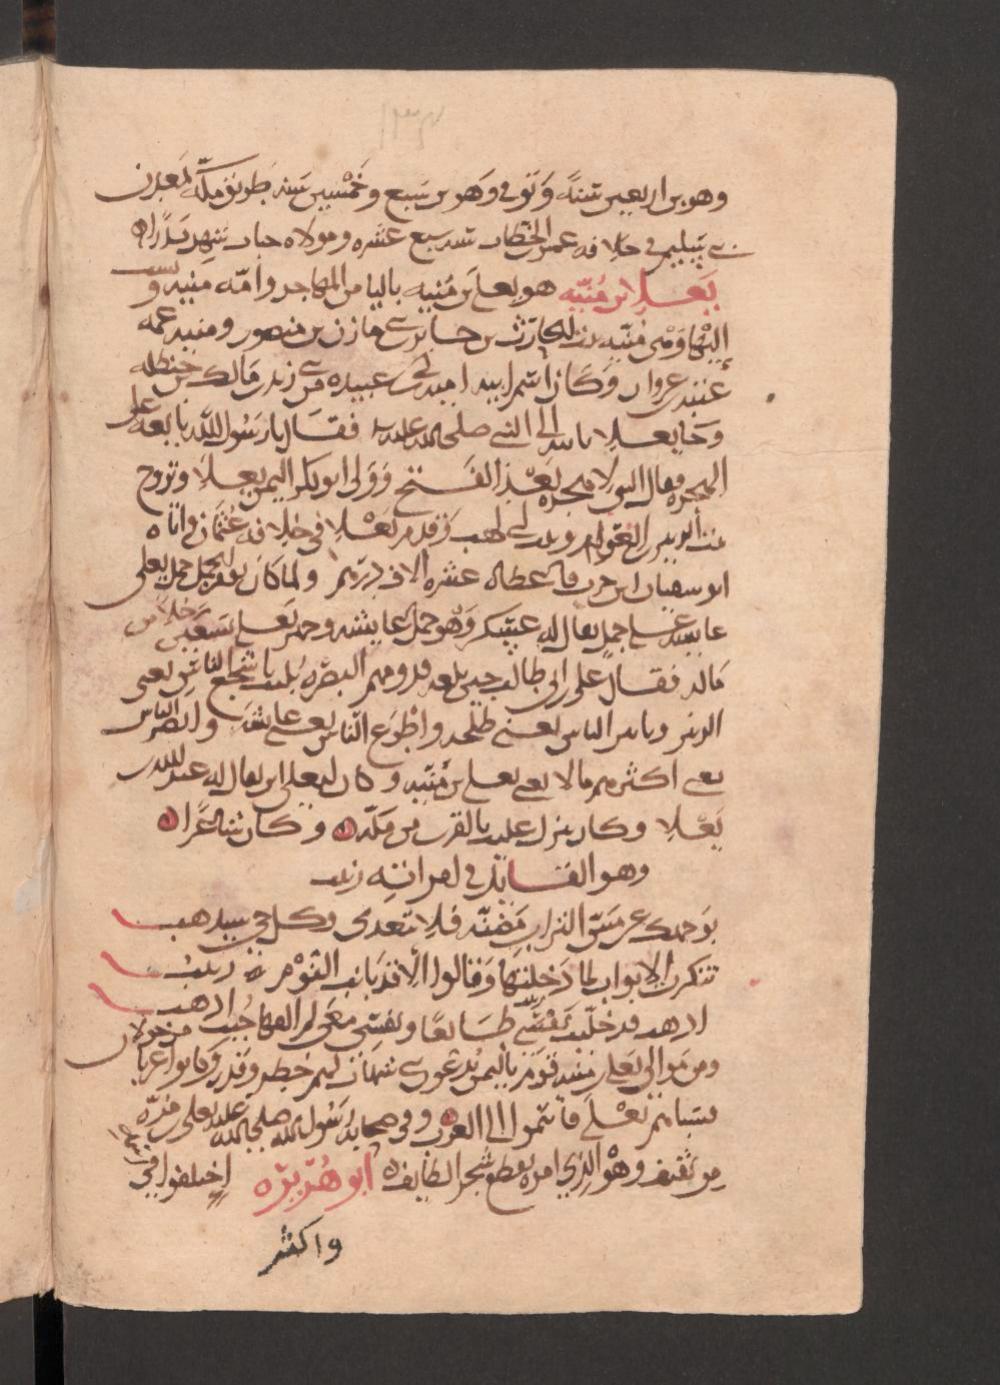 وهو بن اربعين سنةً وتوفي وهو بن سبع وخمسين سنه بطريق مكة بمعدن
بني سليم في خلافه عمر بن الخطاب سنه سبع عشره ومولاه حباب شهد بدرًا
يعلا بن مُنيّه هو يعلى بن مُنيه باليا من المهاجر وامّه منيه ونسب
اليها وهي مُنيّه بنت الحارث بن جابر بني مازن بن منصور ومنيه عمه
عتبه بن غزوان وكان اسم ابيه اميه بن عبيده من بني زيد بن مالك بن حنظله
وجا يعلا بابيه الى النبي صلى الله عليه فقال يا رسول الله بايعه على
الهجره فقال اليو لا هجره بعد الفتح وولى ابو بكر اليمن يعلا وتزوج
بنت الزبير بن العوام وبنت ابي لهب وقدم يعلا في خلافه عثمان واتاه
ابو سفيان ابن حرب فاعطاه عشره الاف درهم ولما كان يوم الجمل حمل يعلى
عايشه على جمل يقال له عسكر وهو جمل عايشه وجهز يعلى سبعين رجلا من
ماله فقال على بن ابي طالب حين بلغه قدومهم البصره بُليت باشجع الناس يعني
الزبير وبابين الناس يعني طلحه واطوع الناس يعني عايشه وانض الناس
يعني اكثرهم مالا يعني يعلى بن مُنيّه وكان ليعلى ابن يقال له عبد الله بن
يعلا وكان ينزل عليب بالقرب من مكه وكان شاعرًا
وهو القايل في امراته زينب
بوجهك عن مس التراب مضنّه فلا تبعدي وكل حي سيذهب
تنكرت الابواب لما دخلتها وقالوا الا قد بانت اليوم زينب
اذهب قد خليت نفسي طايعًا ونفسي معي لم القها حيث اذهب
ومن موالي يعلى بن منيه قوم باليمن يدعون بني شهاب لهم خطر وقدر وكانوا اعرابا من خولان
سباهم يعلى فانتموا الى العرب وفي صحابه رسول الله صلى الله عليه يعلى بن مُرّه
من ثقيف وهو الذي امره بقطع شجر الطايف ابو هُريره اختلفوا في اسمه
واكثر